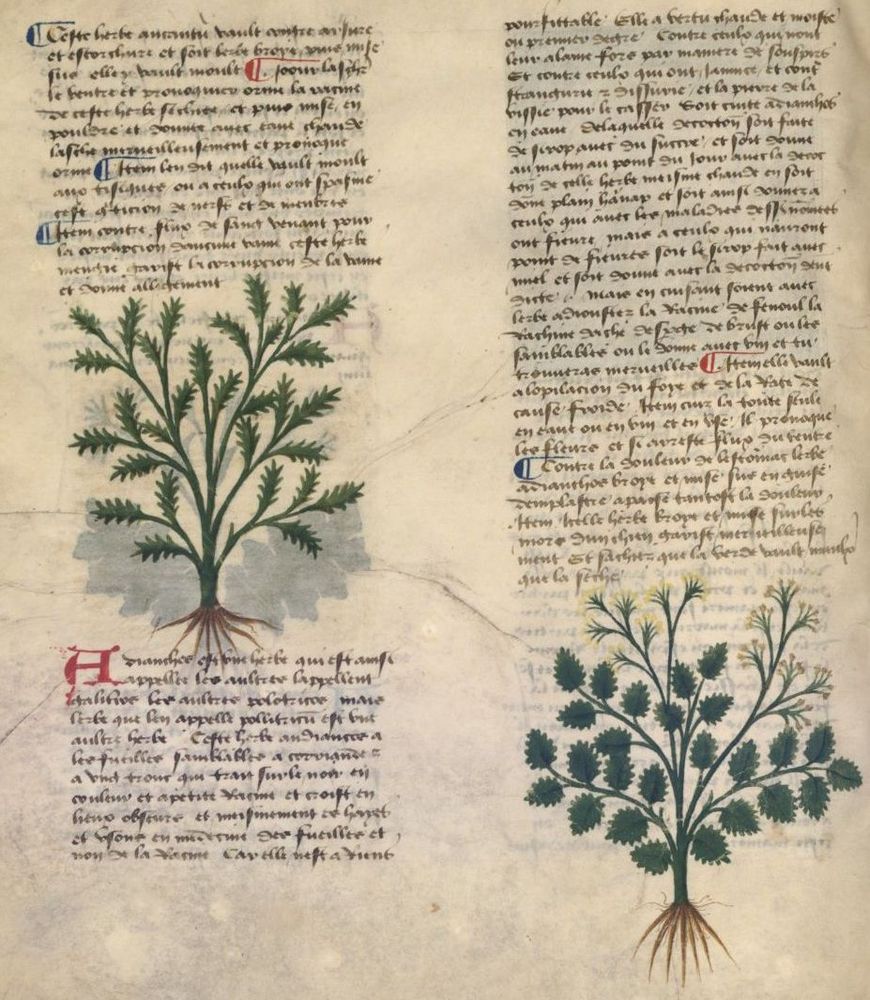 Ceste herbe aucuntu vault contre arsure
et escorchure et soit lerbe broye puis mise
sus elle y vault moult ¶ Pour laschr
le ventre et prouoquier orine la racine
de ceste herbe sechiee et puis mise en
pouldre et donnee auec eaue chaude
lasche merueilleusement et prouoque
orine ¶ Item len dit quelle vault moult
aux tisiques ou a ceulx qui ont spasme
cest de nerfs et de menbres
¶ Item contre flux de sang venant pour
la corrupcion daucune vaine ceste herbe
mengie garist la corrupcion de la vaine
et donne allegement
Adianthos est vne herbe qui est ainsi
appellee les aultres lappellent
galitios les aultres politricos mais
lerbe que len appelle pollitricu est vne
aultre herbe Ceste herbe a
les fueilles samblables a coriandre
a vng tronc qui trait sur le noir en
couleur et a petite racine et croist en
lieux obscurs et meismement es hayes
et vsons en medecine des fueilles et
non de la racine Car elle nest a riens
pourfittable Elle a vertu chaude et moiste
ou premier degre Contre ceulx qui nont
leur alaine fors par maniere de souspirs
Et contre ceulx qui ont jaunice et cont
strangurie z dissurie et la pierre de la
vissie pour le casser Soit cuite adianthos
en eaue de laquelle decoction soit faite
de sirop auec du succre et soit donne
au matin au point du jour auec la decoc
tion de celle herbe meisme chaude en soit
donne plain hanap et soit ainsi donne a
ceulx qui auec les maladies dessus nommees
ont fieure mais a ceulx qui nauront
point de fieures soit le sirop fait auec
miel et soit donne auec la decoction deut
dicte mais en cuisant soient auec
lerbe adioustez la racine de fenoul la
rachine dache de de brust ou les
samblables ou le donne auec vin et tu
trouueras merueilles ¶ Item elle vault
a lopilacion du foye et de la rate de
cause froide Item cuir la toute seule
en eaue ou en vin et en vse Il prouoque
les fleurs et si arreste flux du ventre
¶ Contre la douleur de lestomac lerbe
adianthos broye et mise sus en guise
demplastre apaise tantost la douleur
Item Icelle herbe broye et mise sur les
mors dun chien garist merueilleuse
ment Et sachez que la verde vault mieulx
que la seche